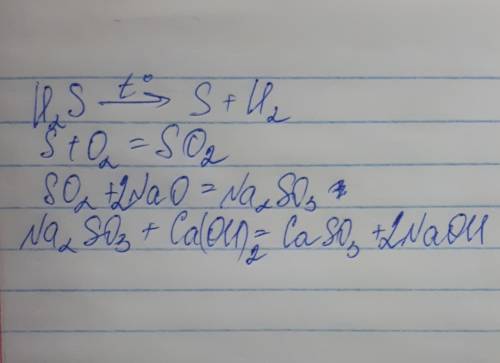 H₂S t° → S + H₂
S + O₂ = SO₂
SO₂ + 2NaO = Na₂SO₃
Na₂SO₃ + Ca(OH)₂ = CaSO₃ + 2NaOH